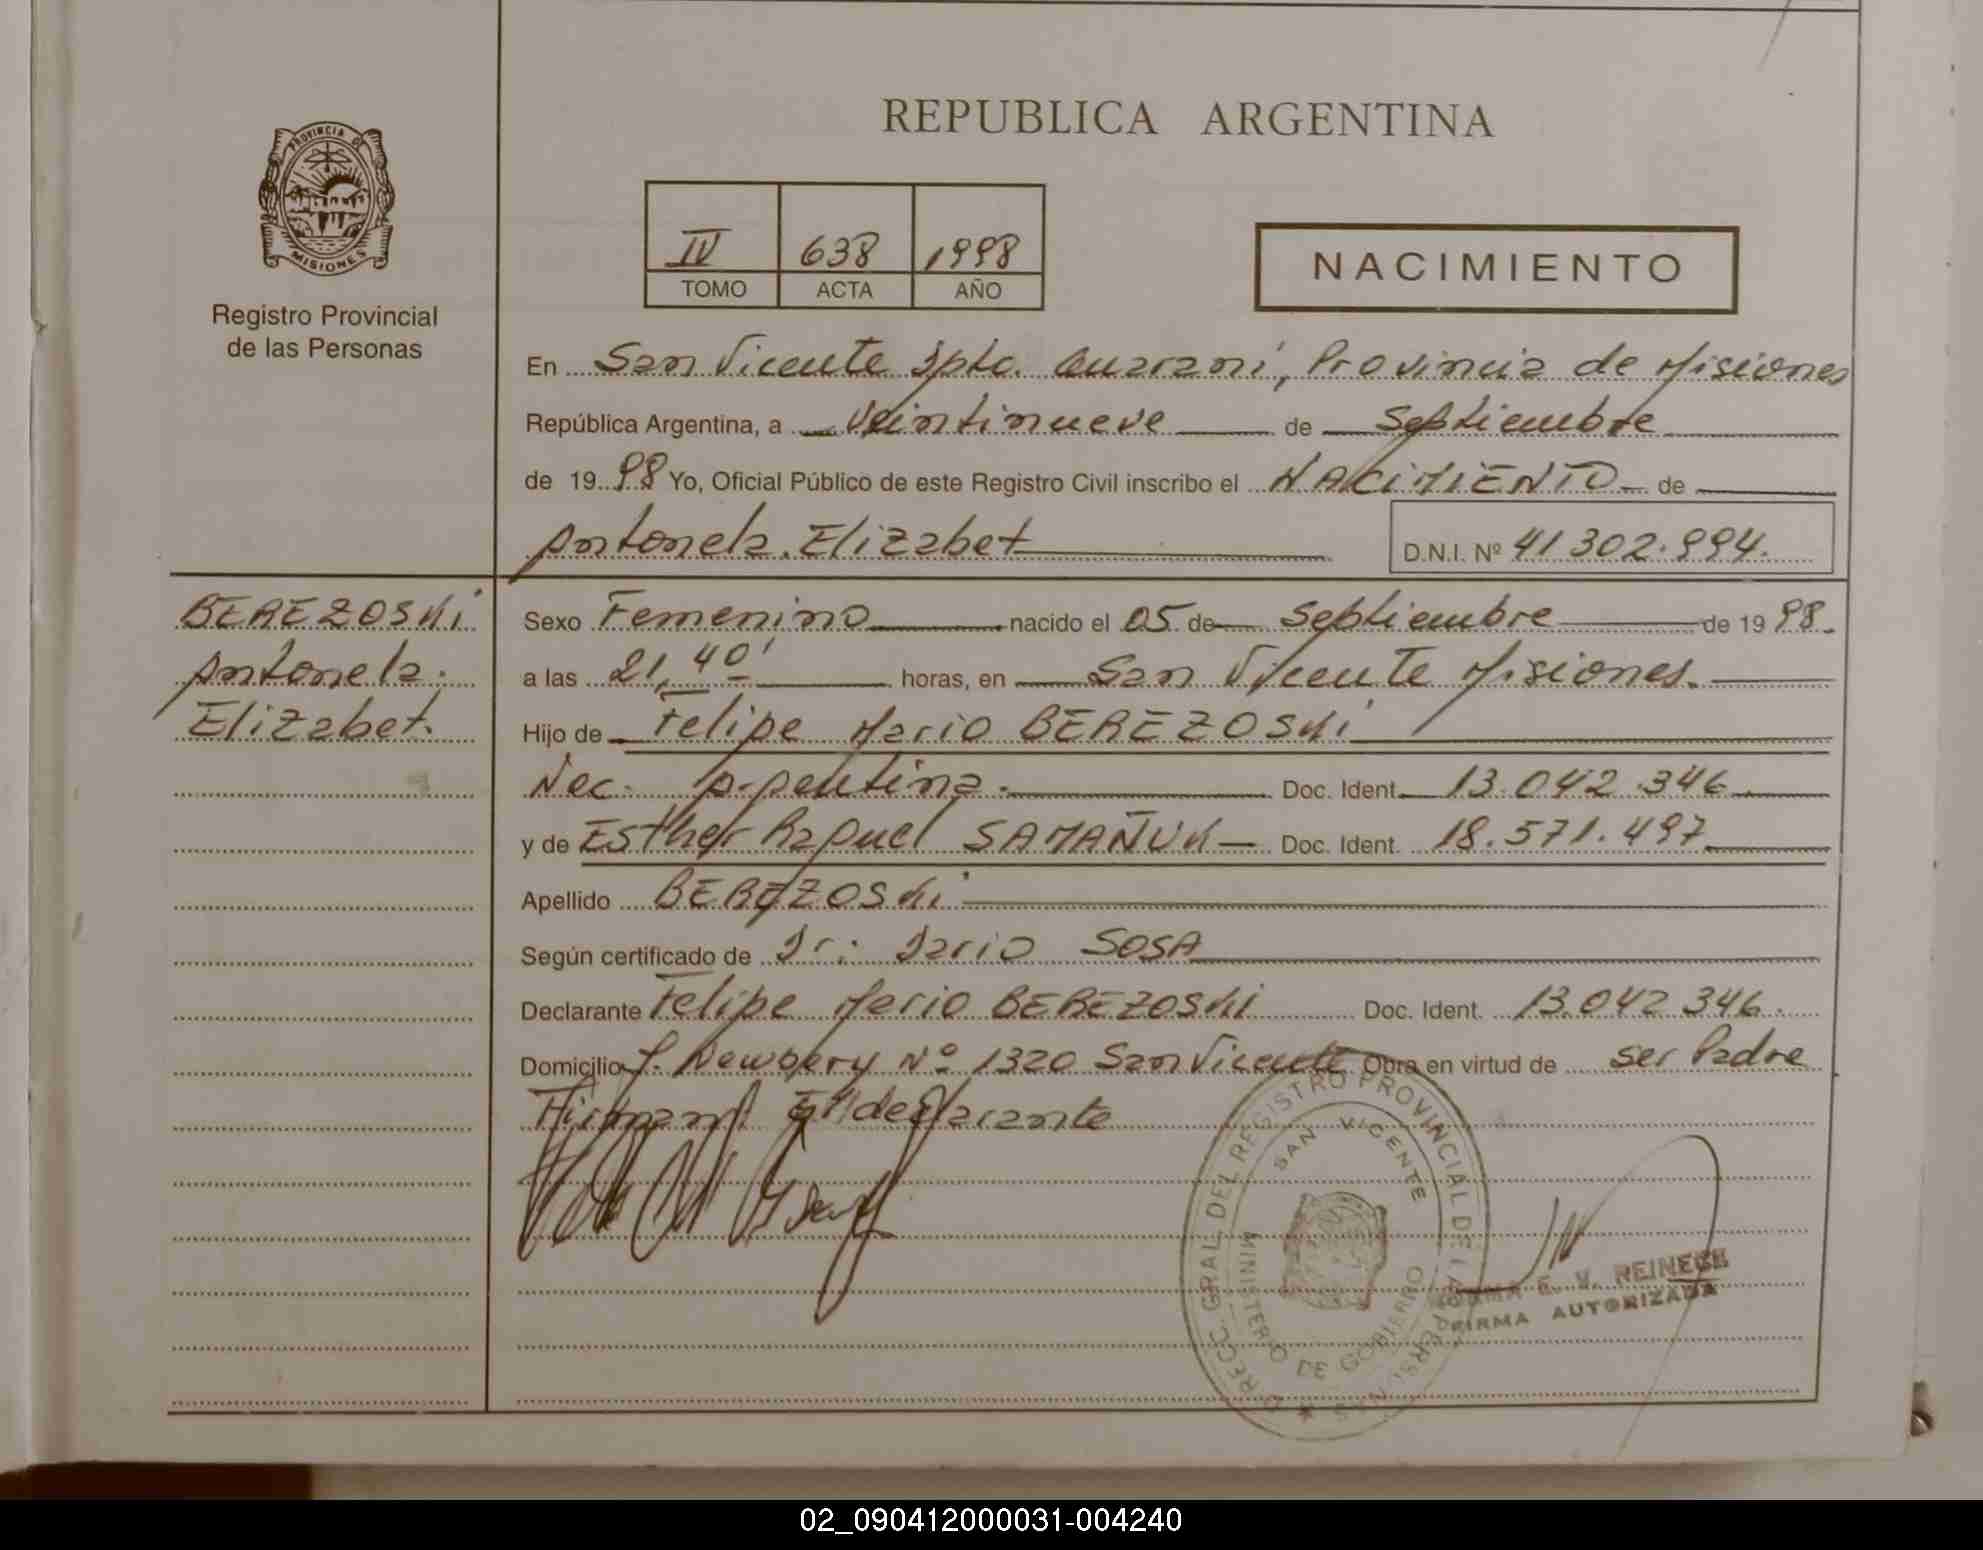 REPUBLICA ARGENTINA
PROVINCIA DE
MISIONES
Registro Provincial
de las Personas
IV 638 1998
TOMO ACTA AÑO
NACIMIENTO
En San Vicente Dpto. Guarani, Provincia de Misiones
República Argentina, a veintinueve de Septiembre
de 1998 Yo, Oficial Público de este Registro Civil inscribo el NACIMIENTO de
Antonela Elizabet D.N.I. Nº 41 302.994.
BEREZOSKI
Antonela
Elizabet.
Sexo Femenino nacido el 05 de Septiembre de 1998.
a las 21,40' horas, en San Vicente Misiones.
Hijo de Felipe Mario BEREZOSKI
Nac. Argentina. Doc. Ident. 13.042.346
y de Esther Raquel SAMAÑUK Doc. Ident. 18.571.497
Apellido BEREZOSKI
Según certificado de Dr: Dario SOSA
Declarante Felipe Mario BEREZOSKI Doc. Ident. 13.042 346.
Domicilio J. Newbery Nº 1320 San Vicente Obra en virtud de ser Padre
Firman: El declarante
DIRECC. GRAL. DEL REGISTRO PROVINCIAL DE LAS PERSONAS
SAN VICENTE
MINISTERIO DE GOBIERNO
NORMA E. V. REINECK
FIRMA AUTORIZADA
02_090412000031-004240